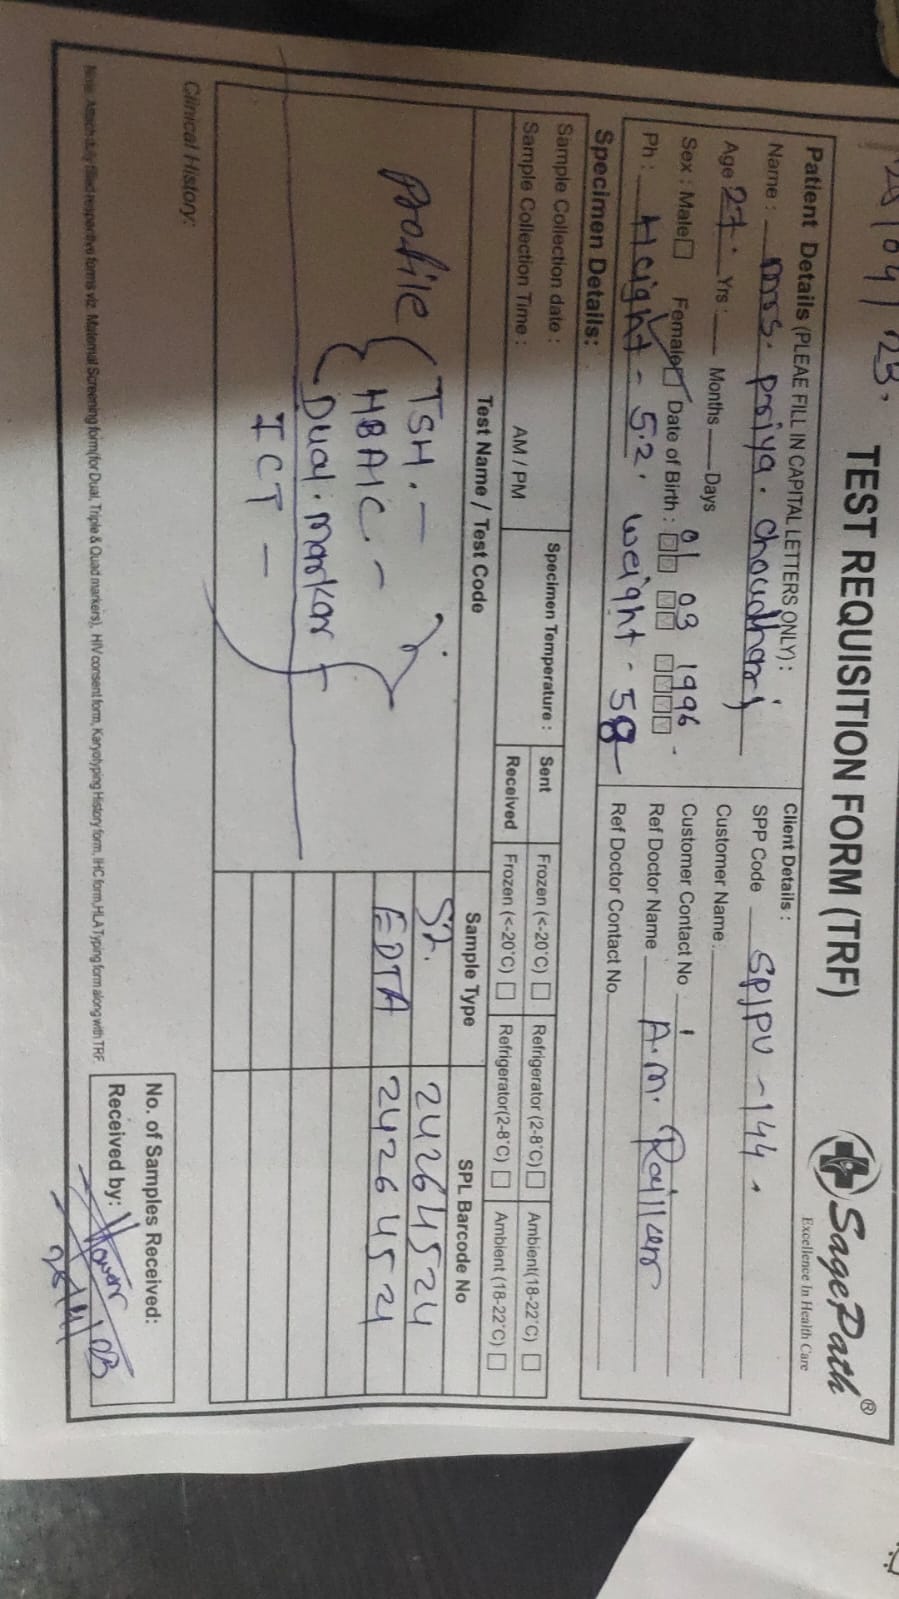 25/04/23.
TEST REQUISITION FORM (TRF)
SagePath®
Excellence In Health Care
Patient Details (PLEAE FILL IN CAPITAL LETTERS ONLY) :
Name : mrs. priya. choudhary
Age 27. Yrs : Months Days
Sex : Male Female Date of Birth : 01 03 1996
Ph : Height - 5.2. weight - 58
Client Details :
SPP Code SPJPU - 144
Customer Name :
Customer Contact No
Ref Doctor Name A.M.
Ref Doctor Contact No
Specimen Details:
Sample Collection date :
Sample Collection Time : AM / PM
Specimen Temperature :
Sent Frozen (<-20°C) Refrigerator (2-8°C) Ambient(18-22°C)
Received Frozen (<-20°C) Refrigerator(2-8°C) Ambient (18-22°C)
Test Name / Test Code Sample Type SPL Barcode No
TSH. - 24264524
profile HBAIC - EDTA 24264521
Dual. markar
ICT -
Clinical History:
No. of Samples Received:
Received by:
Note: Attach duly filled respective forms viz. Maternal Screening form(for Dual, Triple & Quad markers), HIV consent form, Karyotyping History form, IHC form,HLA Typing form along with TRF.